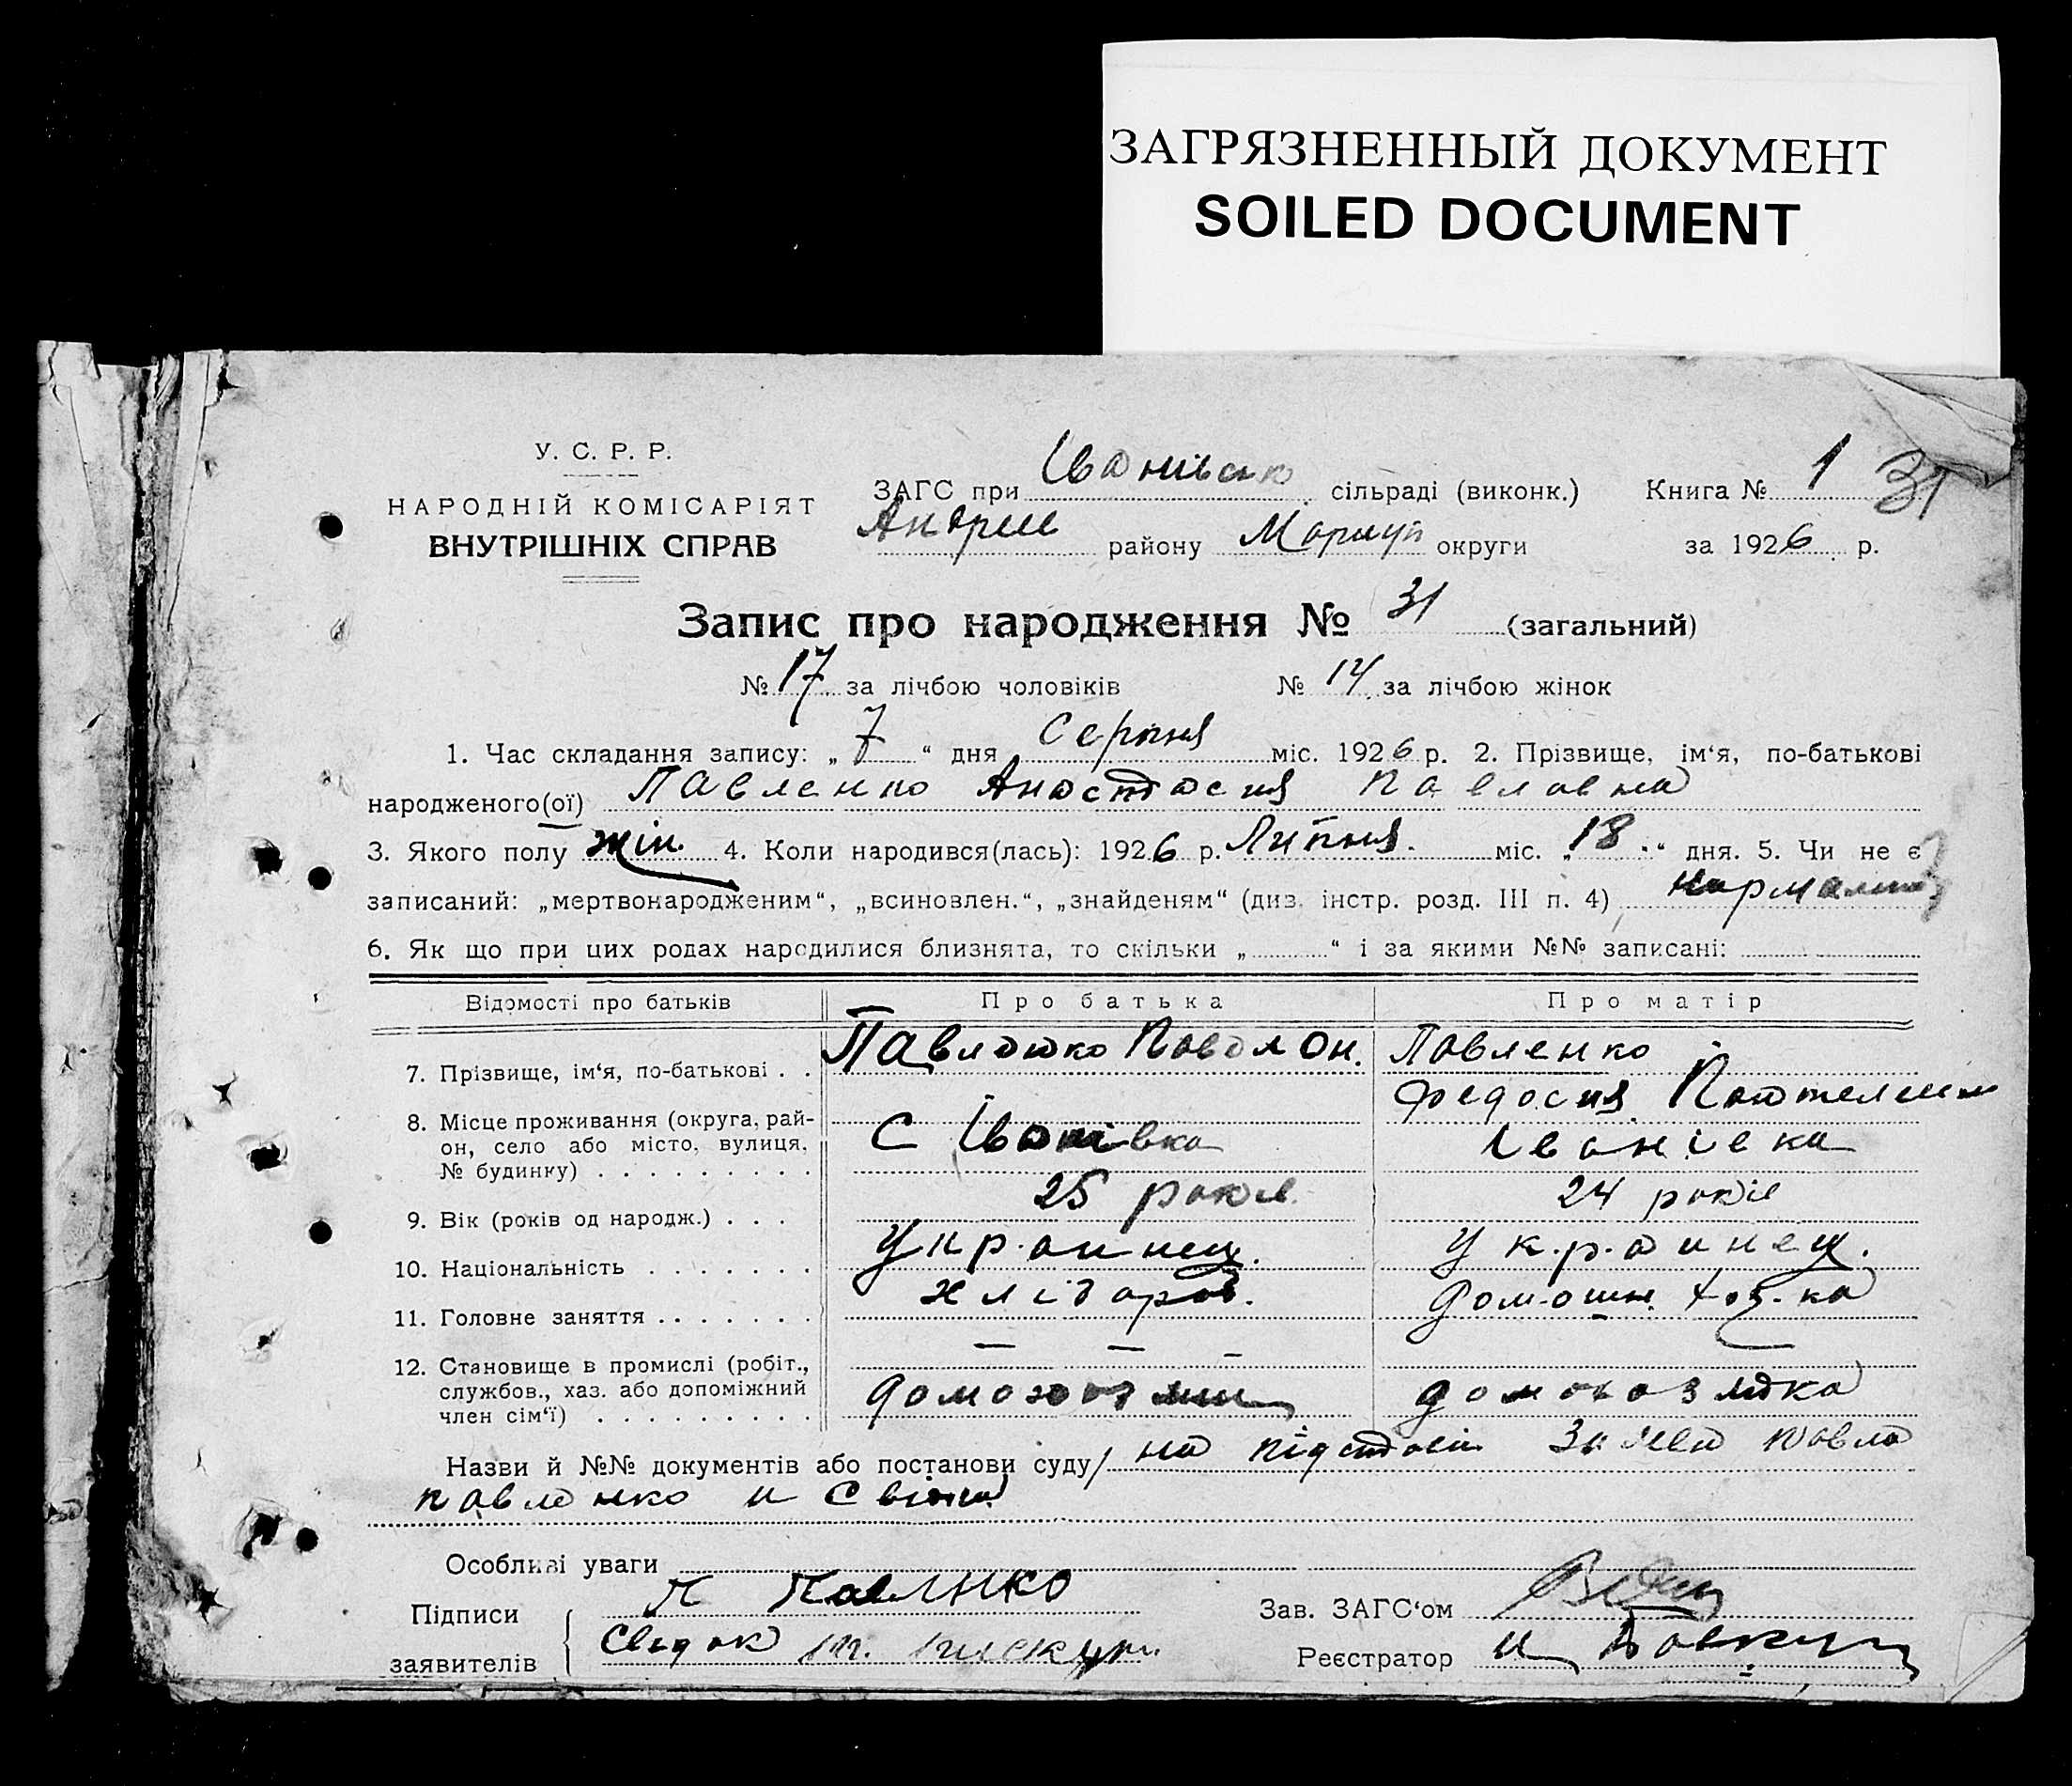 ЗАГРЯЗНЕННЫЙ ДОКУМЕНТ
SOILED DOCUMENT
У. С. Р. Р.
НАРОДНІЙ КОМІСАРІЯТ
ВНУТРІШНІХ СПРАВ
ЗАГС при Іванівско сільраді (виконк.) Книга № 1 31
Андріїв району Маріуп округи за 1926 р.
Запис про народження № 31 (загальний)
№ 17 за лічбою чоловіків № 14 за лічбою жінок
1. Час складання запису: „ 7 “ дня Серпня міс. 1926 р. 2. Прізвище, ім‘я, по-батькові
народженого(ої) Павленко Анастасия Павловна
3. Якого полу жін. 4. Коли народився(лась): 1926 р. Липня. міс. „ 18 “ дня. 5. Чи не є
записаний: „мертвонародженим“, „всиновлен.“, „знайденям“ (див. інстр. розд. III п. 4)
6. Як що при цих родах народилися близнята, то скільки „ “ і за якими №№ записані:
Відомості про батьків Про батька Про матір
7. Прізвище, ім‘я, по-батькові . . Павленко Павло Павленко
Федосия
8. Місце проживання (округа, рай-
он, село або місто, вулиця, С Іванівка Іванівка
№ будинку) . . . . . . . . .
9. Вік (років од народж.) . . . 25 років 24 років
10. Національність . . . . . . . Украинец. Украинец.
11. Головне заняття . . . . . . . хлібороб. домошн. хоз-ка
— — — —
12. Становище в промислі (робіт.,
службов., хаз. або допоміжний домохозяин домохозядка
член сім‘ї) . . . . . . . . .
Назви й №№ документів або постанови суду/ на підставі Заяви Павла
Павленко и Свідка
Особливі уваги
Підписи П Павлнко Зав. ЗАГС‘ом
заявителів Свідок Реєстратор